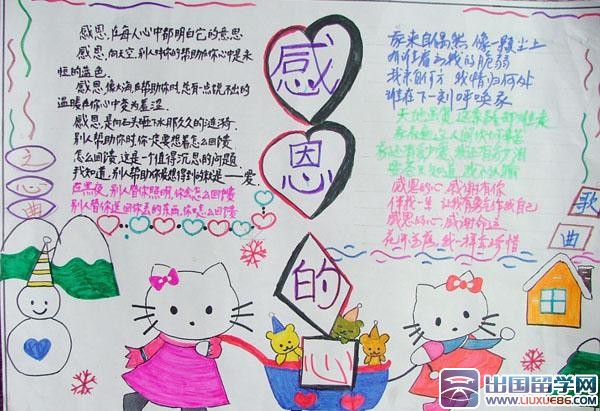 感恩的心
心
曲
感恩，在每人心中都明白它的意思
感恩，向天空，别人对你的帮助在你心中是永
恒的蓝色.
感恩，像大海，在帮助你时，总有一点说不出的
温暖在你心中变为羞涩.
感恩，是向石头砸下水那久久的涟漪.
别人帮助你时，你一定要想着怎么回馈
怎么回馈，这是个值得沉思的问题.
我知道，别人帮助你最想得到的就是——爱.
在黑夜，别人替你照明，你会怎么回馈
别人替你送回你丢的东西，你怎么回馈
我来自偶然 像一颗尘土
有谁看出我的脆弱
我来自何方 我情归何处
谁在下一刻呼唤我
感恩的心 感谢有你
伴我一生 让我有勇气作我自己
感恩的心 感谢命运
花开花落 我一样会珍惜
歌
曲
出国留学网
WWW.LIUXUE86.COM